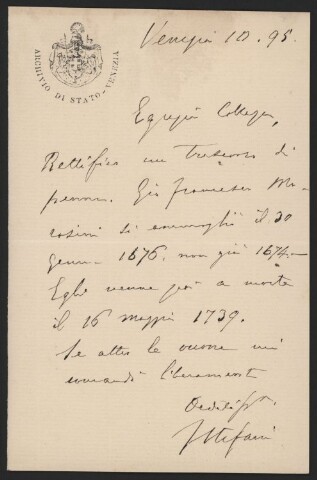 ARCHIVIO DI STATO-VENEZIA
Venezia 10. 95.
Egregio Collega,
Rettifico un trascorso di
penna. Gio Francesco Mo-
rosini si ammogliò il 30
genn. 1676, non già 1674.—
Egli venne poi a morte
il 16 maggio 1739.
Se altro le occorre mi
comandi liberamente
Stefani